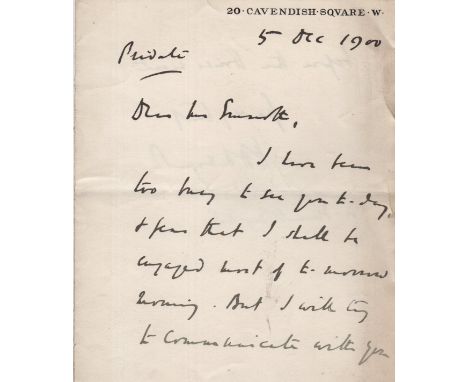 20·CAVENDISH·SQVARE·W·
5 Dec 1900
Private
Dear Mr
I have been
too busy to see you to-day,
& fear that I shall be
engaged most of to-morrow
morning. But I will try
to communicate with you